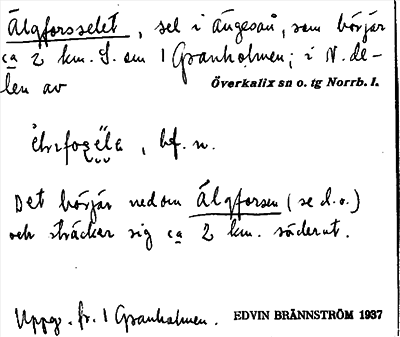 Älgforsselet, sel i Ängesån, som börjar
ca 2 km. S. om 1 Granholmen; i N. de-
len av Överkalix sn o. tg Norrb. l.
bf. n.
Det börjar nedom Älgforsen (se d.o.)
och sträcker sig ca 2 km. söderut.
Uppg. fr. 1 Granholmen. EDVIN BRÄNNSTRÖM 1937